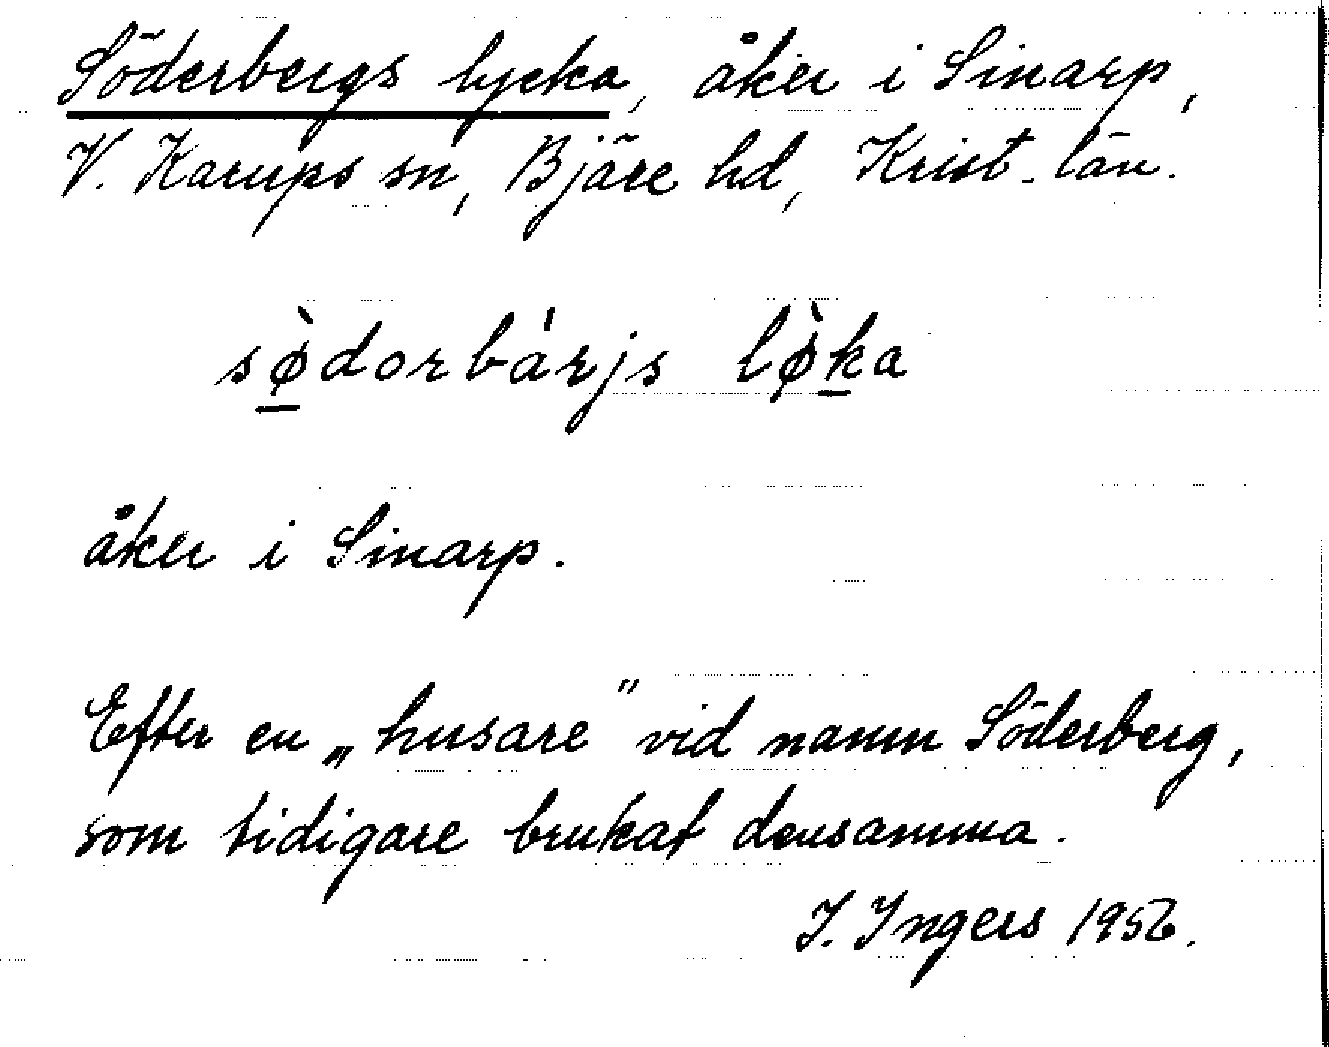 Söderbergs lycka, åker i Sinarp,
V. Karups sn, Bjäre hd, Krist. län.
sø̀dorbárjs lø̀ka
åker i Sinarp.
Efter en „husare” vid namn Söderberg,
som tidigare brukat densamma.
I. Ingers 1956.